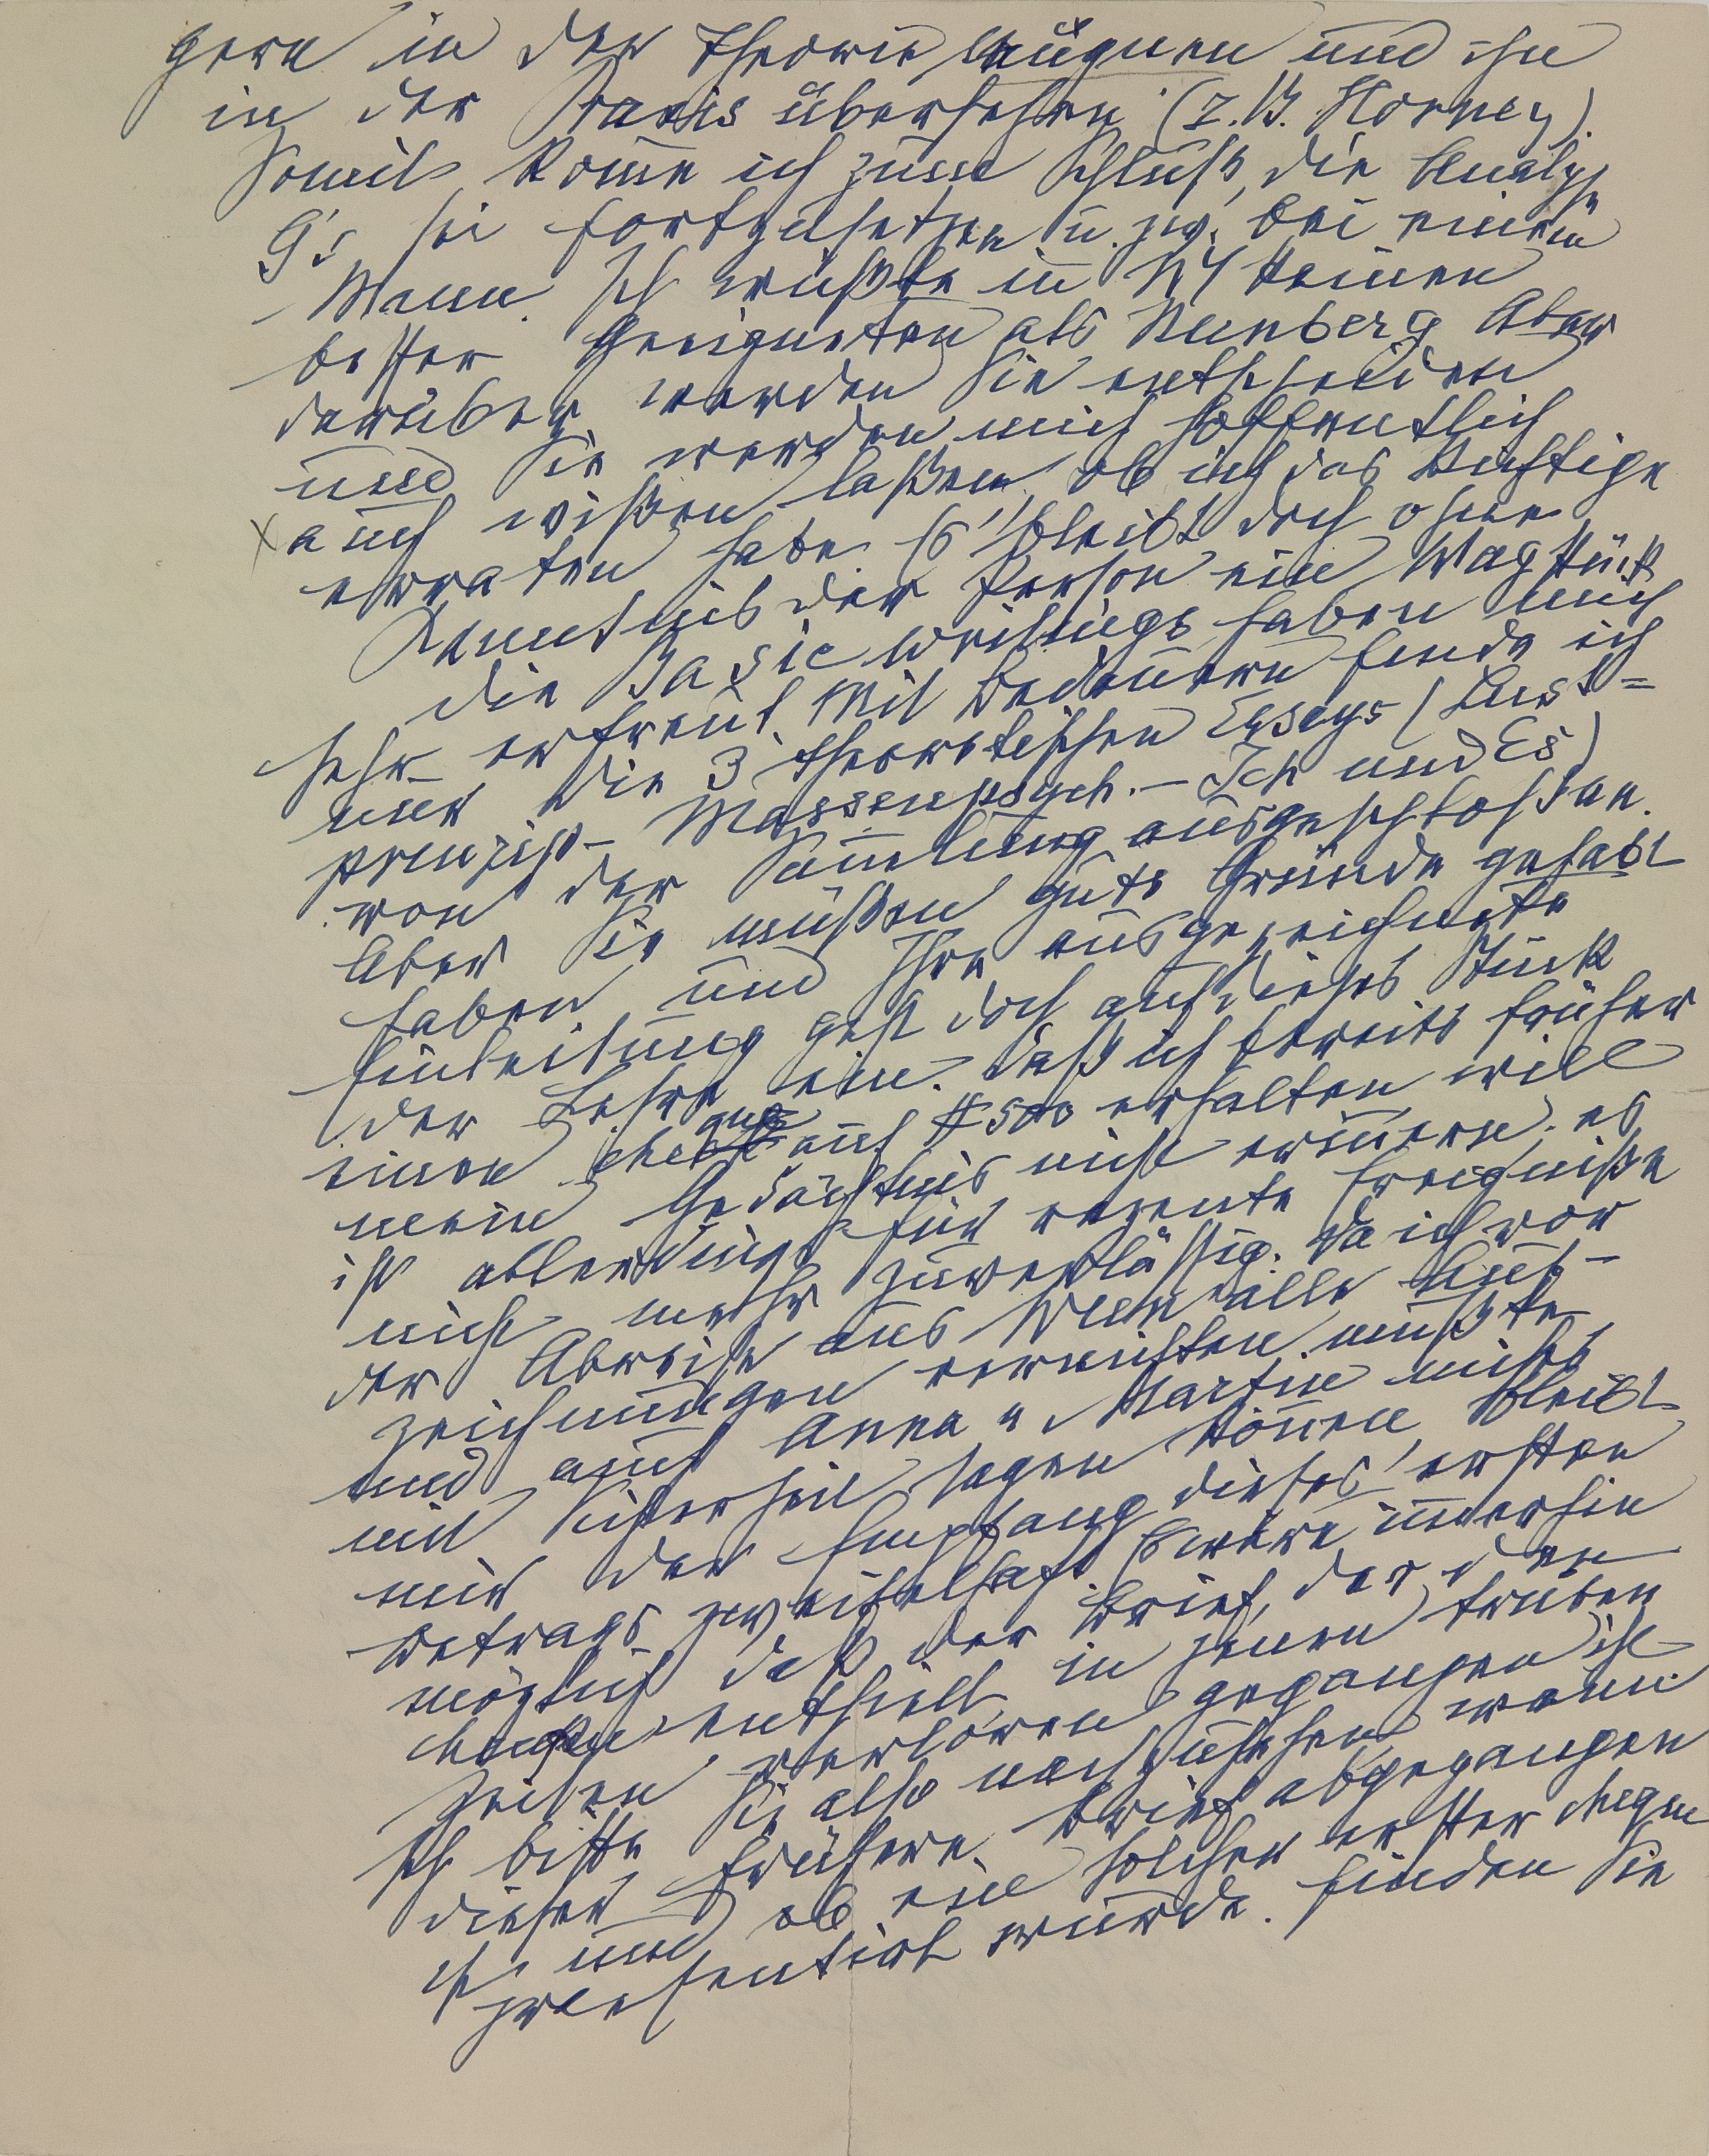 gern in der Theorie läugnen und ihn
in der Praxis übersehen (z.B. Horney).
Somit kom̅e ich zum Schluß, die Analyse
G's sei fortzusetzen u. zw. bei einem
Mann. Ich wüßte in NY keinen
besser Geeigneten als Nunberg Aber
darüber werden Sie entscheiden
und Sie werden mich hoffentlich
auch wißen laßen, ob ich das Richtige
erraten habe. Es bleibt doch ohne
Kenntnis der Person ein Wagstück
Die Basic Writings haben mich
sehr erfreut. Mit Bedauern finde ich
nur die 3 theoretischen Essays (Lust=
prinzip – Massenpsych. – Ich und Es)
von der Sam̅lung ausgeschloßen.
Aber Sie müßen gute Gründe gehabt
haben und Ihre ausgezeichnete
Einleitung geht doch auf dieses Stück
der Lehre ein. Daß ich bereits früher
einen cheque auf $500 erhalten will
mein Gedächtnis nicht erin̅ern. es
ist allerdings für rezente Ereigniße
nicht mehr zuverläßig. Da ich vor
der Abreise aus Wien alle Auf-
zeichnungen vernichten mußte
und auch Anna u Martin nichts
mit Sicherheit sagen kön̅en, bleibt
mir der Empfang dieses ersten
Betrags zweifelhaft Es wäre im̅erhin
möglich daß der Brief, der den
cheque enthielt, in jenen trüben
Zeiten verloren gegangen ist
Ich bitte Sie also nachzusehen wan̅
dieser frühere Brief abgegangen
ist und ob ein solcher erster cheque
praesentirt wurde. Finden Sie